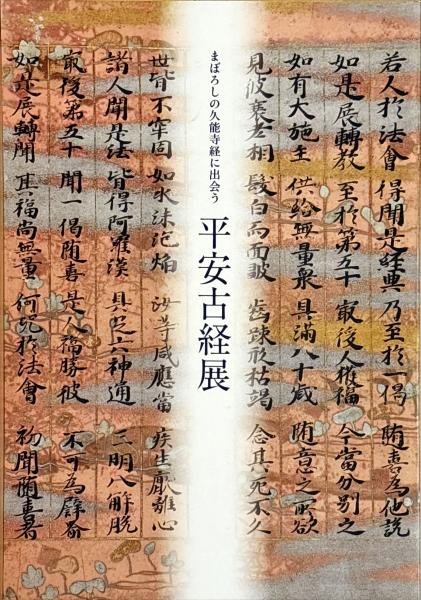 若人於法會 得聞是經典 乃至於一偈 随喜為他説
如是展轉教 至於第五十 㝡後人獲福 今當分別之
如有大施主 供給無量衆 具満八十歳 随意之所欲
見彼衰老相 髮白而面皺 齒疎形枯竭 念其死不久
まぼろしの久能寺経に出会う
平安古経展
世皆不牢固 如水沫泡焔 汝等咸應當 疾生厭離心
諸人聞是法 皆得阿羅漢 具足六神通 三明八解脱
㝡後第五十 聞一偈随喜 是人福勝彼 不可為譬喩
如是展轉聞 其福尚無量 何況於法會 初聞随喜者